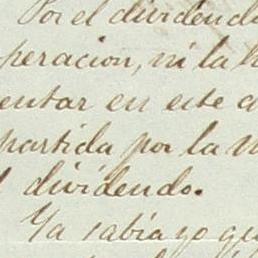 Por el dividendo
peracion, ni la h
entar en este a
partida por la m
l dividendo.
Ya sabia yo qu